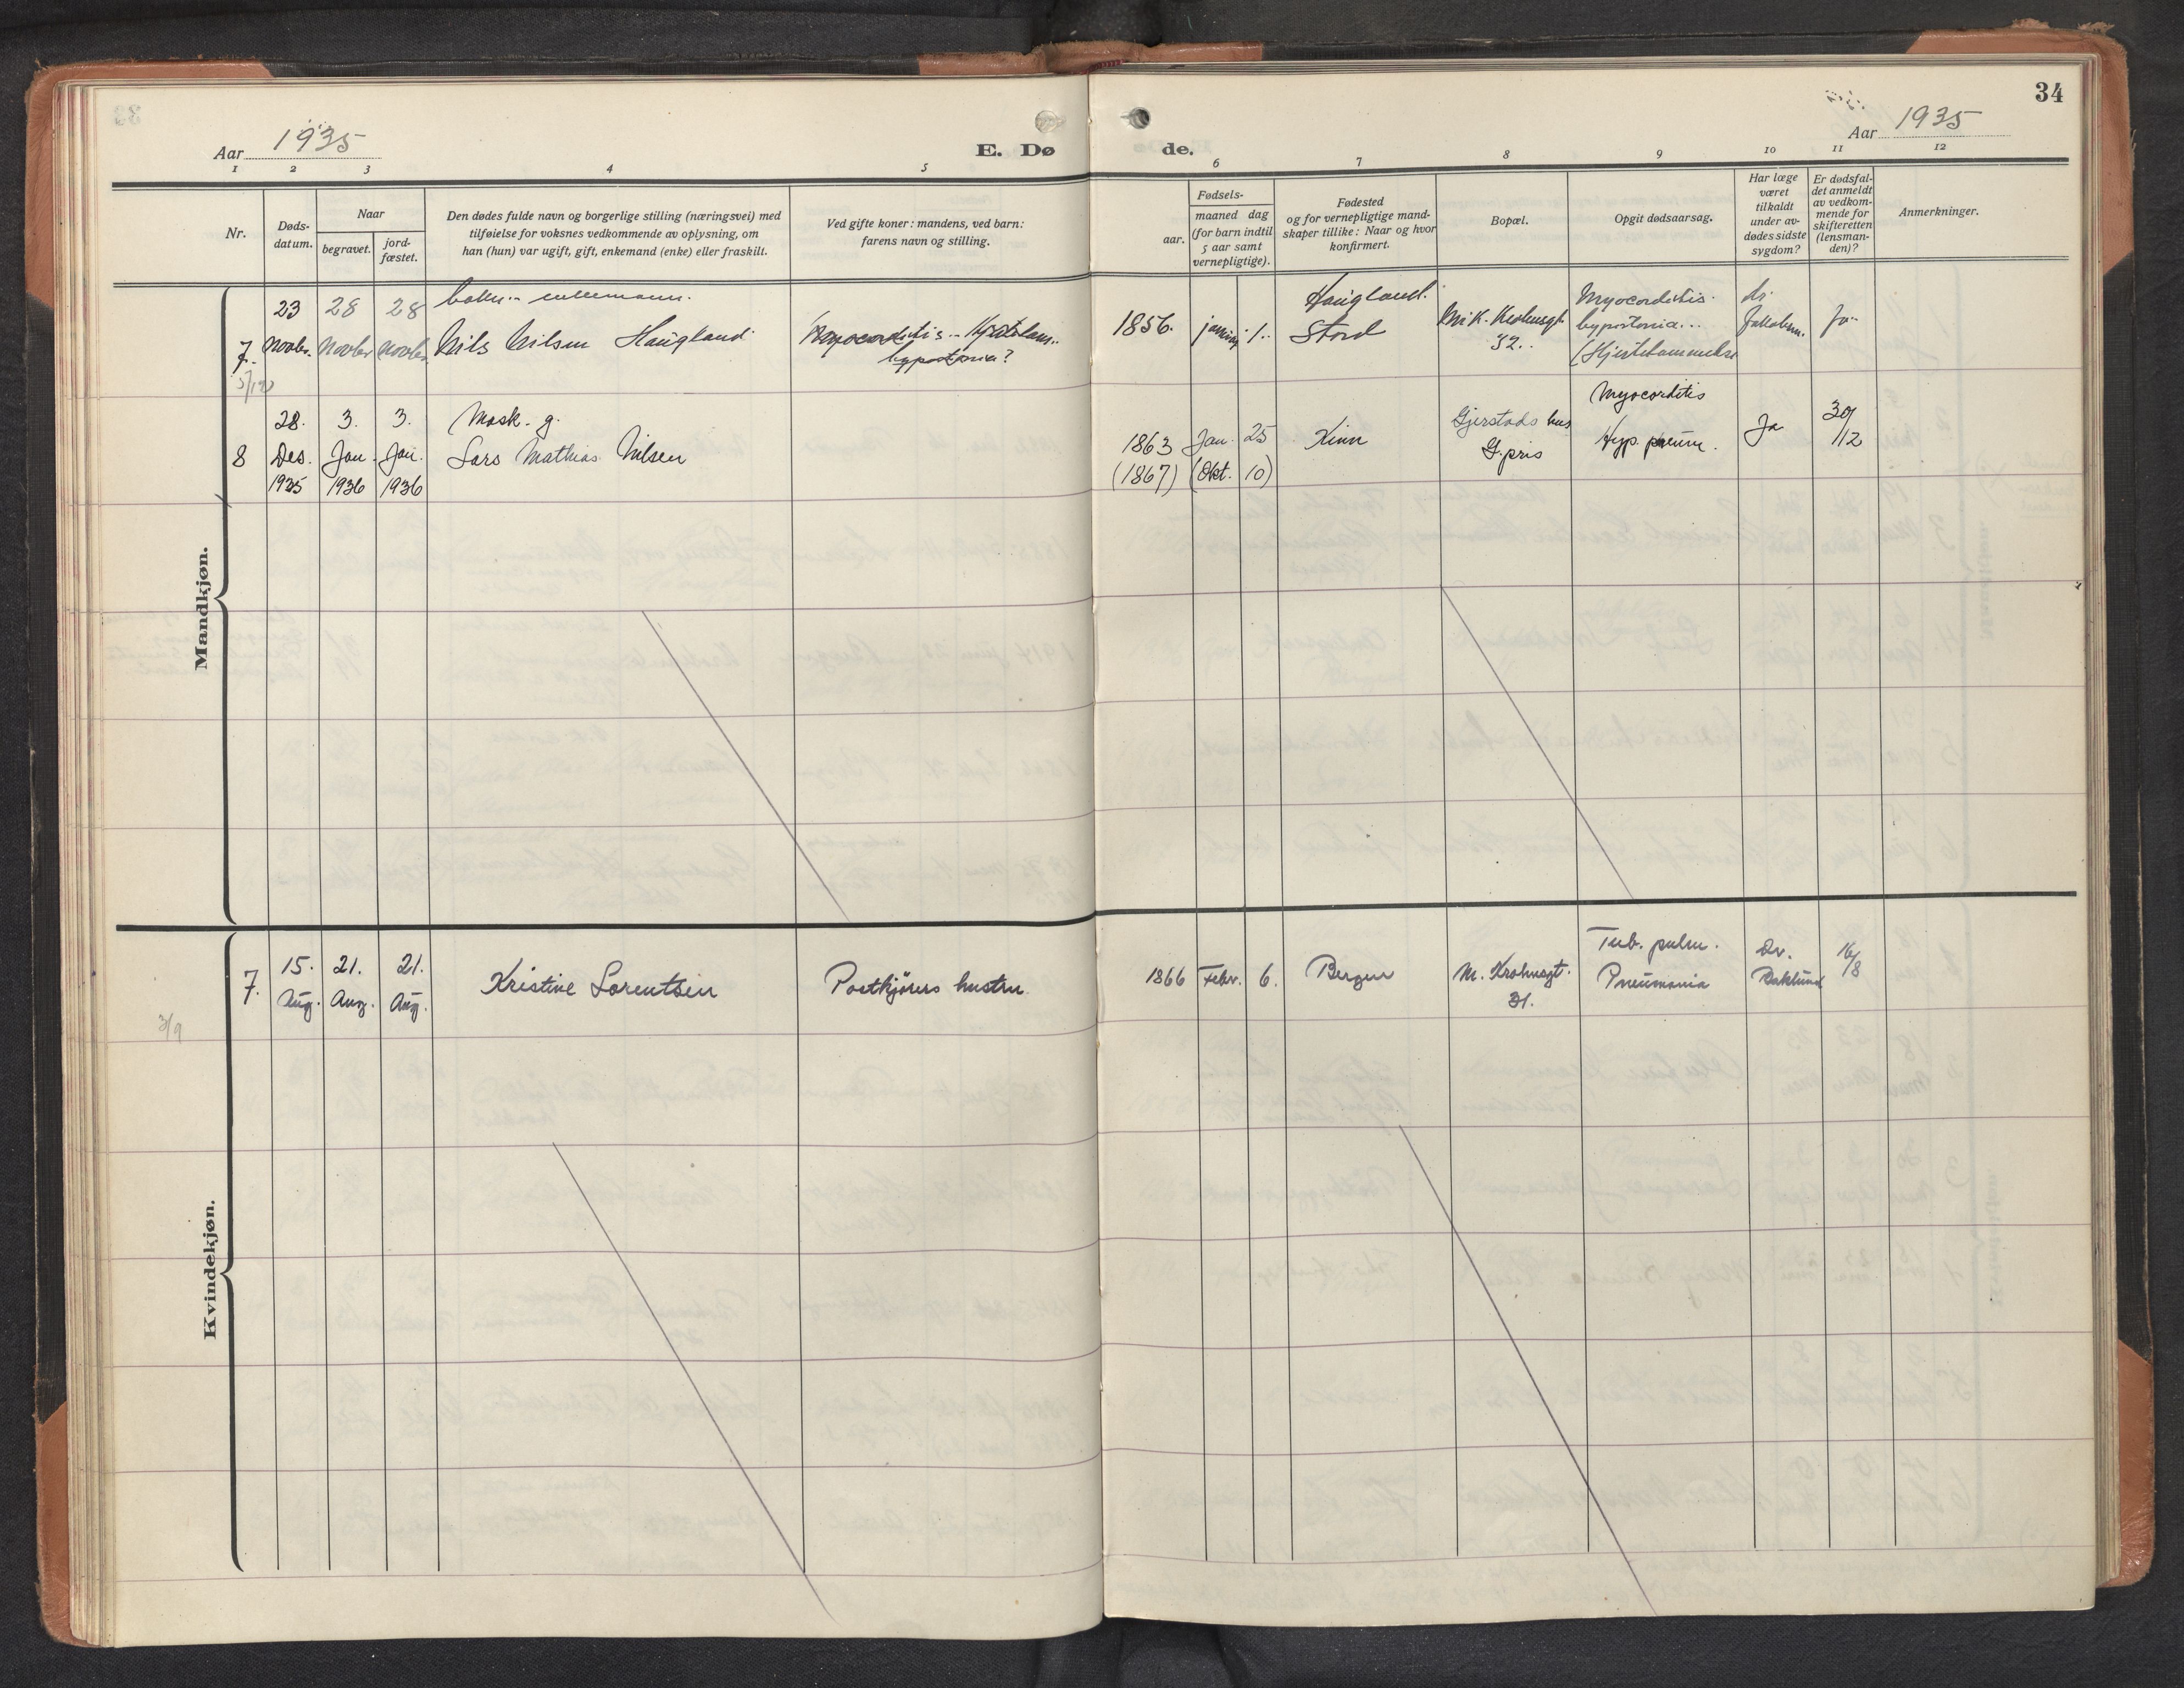 34
Aar 1935
E. Dø
de.
Aar 1935
1 2 3 4 5 6 7 8 9 10 11 12
Nr.
Døds-
datum.
Naar
begravet.
jord-
fæstet.
Den dødes fulde navn og borgerlige stilling (næringsvei) med
tilføielse for voksnes vedkommende av oplysning, om
han (hun) var ugift, gift, enkemand (enke) eller fraskilt.
Ved gifte koner: mandens, ved barn:
farens navn og stilling.
Fødsels-
aar.
maaned dag
(for barn indtil
5 aar samt
vernepligtige).
Fødested
og for vernepligtige mand-
skaper tillike: Naar og hvor
konfirmert.
Bopæl.
Opgit dødsaarsag.
Har læge
været
tilkaldt
under av-
dødes sidste
sygdom?
Er dødsfal-
det anmeldt
av vedkom-
mende for
skifteretten
(lensman-
den)?
Anmerkninger.
Mandkjøn.
7.
23 Novbr.
28 Novbr.
28 Novbr.
Nils Nilsen Haugland
Myocorditis
hypostonia?
1856.
1.
Haugland.
Stord
Mik. Krohnsgt.
32.
Myocorditis.
hypostonia...
dr.
Jakobsen.
Ja
8
28. Des. 1935
3. Jan. 1936
3. Jan. 1936
Mask. g.
Lars Mathias Nilsen
1863 Jan. 25
(1867) (Okt. 10)
Kinn
Gjerstads hus
G.pris
Myocorditis
Hyp. pneum.
Ja
30/12
Kvindekjøn.
7.
15. Aug.
21. Aug.
21. Aug.
3/9
Kristine Lorentsen
Postkjørers hustru
1866 Febr. 6.
Bergen
M. Krohnsgt.
31.
Tub. pulm.
Pneumania
Dr.
16/8